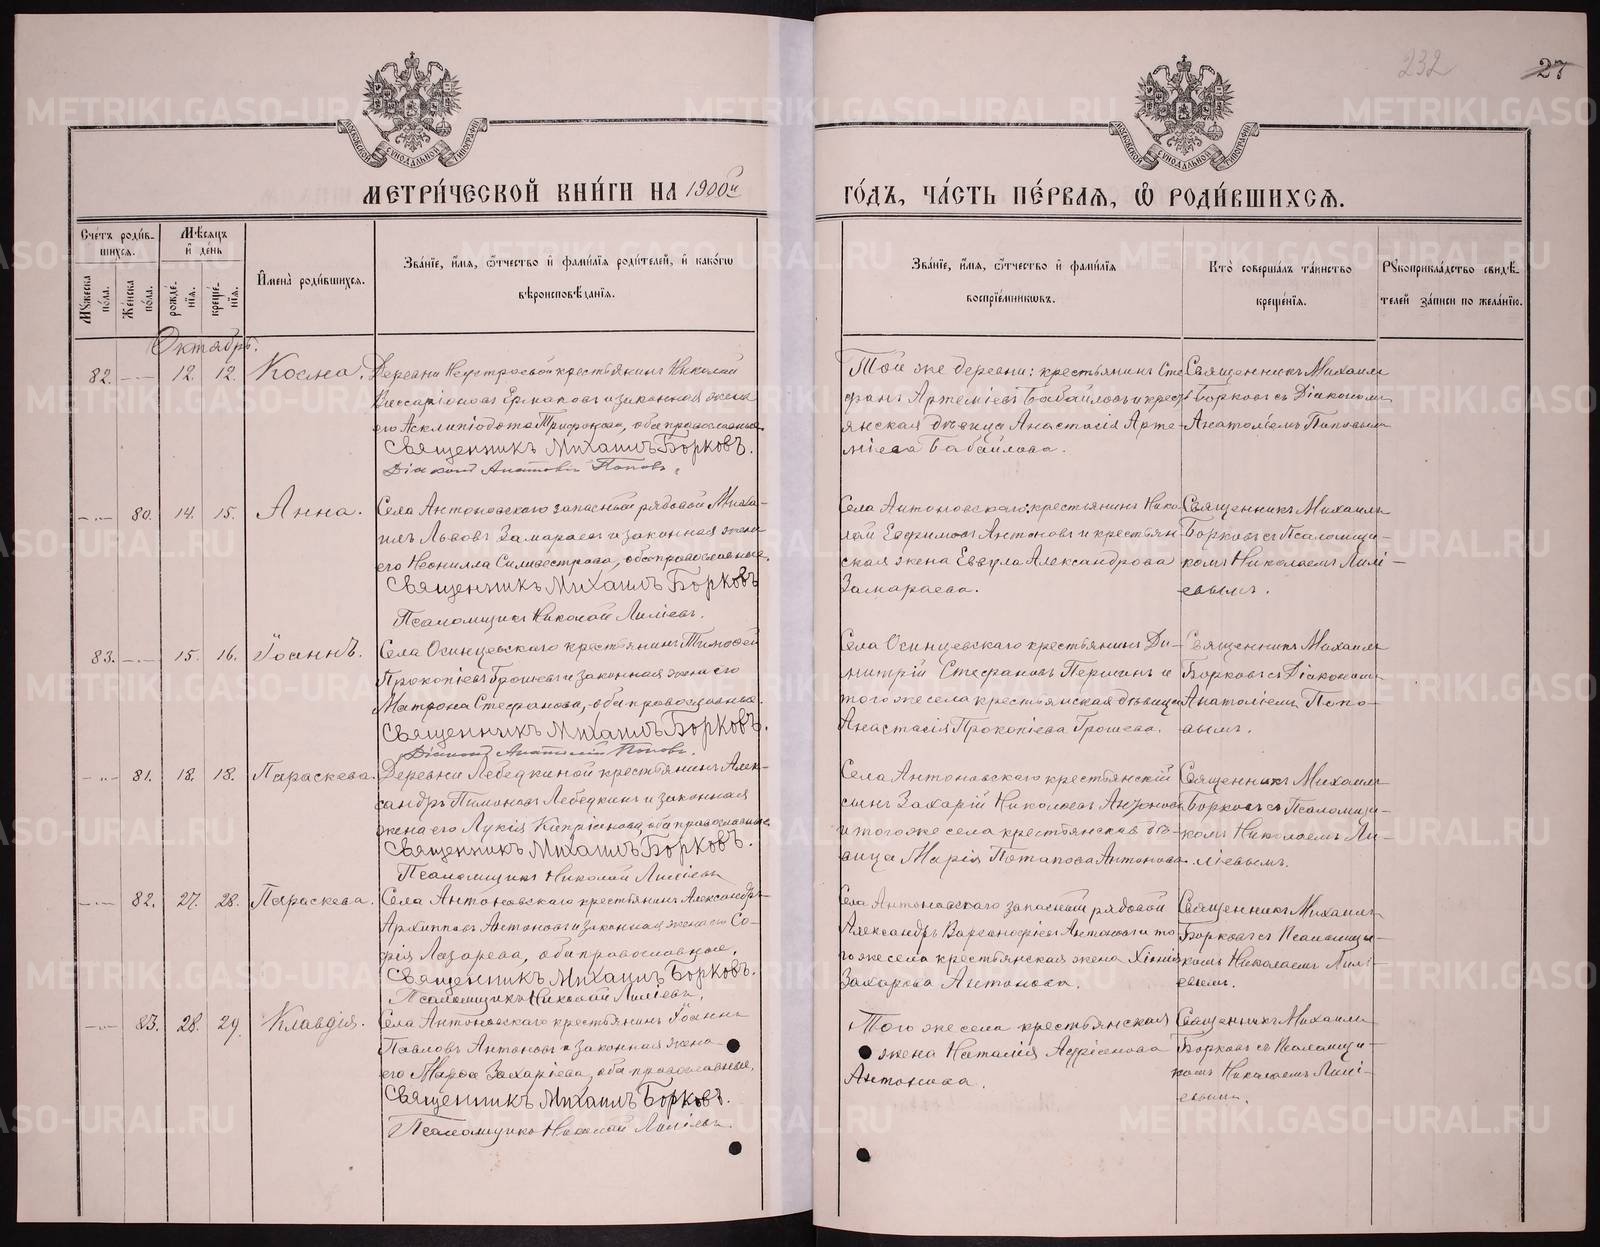 232
27
МЕТРИ́ЧЕСКОЙ КНИ́ГИ НА 1900й
ГО́ДЪ, ЧА́СТЬ ПЕ́РВАѦ, Ѡ҆ РОДИ́ВШИХСѦ.
Сче́тъ роди́в-
шихсѧ.
Мѣ́сѧцъ
и҆ де́нь
Мꙋ́жеска по́ла.
Же́нска по́ла.
рожде́-
нїѧ.
креще́-
нїѧ.
И҆мена̀ роди́вшихсѧ.
Зва́нїе, и҆́мѧ, ѻ҆́тчество и҆ фами́лїѧ роди́телей, и҆ како́гѡ
вѣроисповѣ́данїѧ.
Зва́нїе, и҆́мѧ, ѻ҆́тчество и҆ фами́лїѧ
воспрїе́мникѡвъ.
Кто̀ соверша́лъ та́инство
креще́нїѧ.
Рꙋкоприкла́дство свидѣ́-
телей за́писи по жела́нїю.
Октябрь.
82. 12. 12. Косма.
Деревни Неустроевой крестьянинъ Николай
Виссаріоновъ Ермаковъ и законная жена
его Асклипіодота Трифонова, оба православные.
Священникъ Михаилъ Борковъ.
Діаконъ Анатолій Поповъ.
Той же деревни: крестьянинъ Сте
фанъ Артеміевъ Бабайловъ и крест
янская дѣвица Анастасія Арте-
міева Бабайлова.
Священникъ Михаилъ
Борковъ съ Діакономъ
Анатоліемъ Поповымъ
80. 14. 15. Анна.
Села Антоновскаго запасный рядовой Миха-
илъ Львовъ Замараевъ и законная жена
его Неонилла Силивестрова, оба православные.
Священникъ Михаилъ Борковъ
Псаломщикъ Николай Лиліевъ.
Села Антоновскаго: крестьянинъ Нико
лай Ефимовъ Антоновъ и крестьян
ская жена Еввула Александрова
Замараева.
Священникъ Михаилъ
Борковъ съ Псаломщи-
комъ Николаемъ Лилі-
евымъ.
83. 15. 16. Іоаннъ.
Села Осинцевскаго крестьянинъ Тимофей
Прокопіевъ Грошевъ и законная жена его
Матрона Стефанова, оба православные.
Священникъ Михаилъ Борковъ.
Діаконъ Анатолій Поповъ.
Села Осинцевскаго крестьянинъ Ди-
митрій Стефановъ Пермянъ и
того же села крестьянская дѣвица
Анастасія Прокопіева Грошева.
Священникъ Михаилъ
Борковъ съ Діакономъ
Анатоліемъ Попо-
вымъ.
81. 18. 18. Параскева.
Деревни Лебедкиной крестьянинъ Алек-
сандръ Пимоновъ Лебедкинъ и законная
жена его Лукія Кипріанова, оба православные.
Священникъ Михаилъ Борковъ.
Псаломщикъ Николай Лиліевъ
Села Антоновскаго крестьянскій
сынъ Захарій Николаевъ Антоновъ
и того же села крестьянская дѣ-
вица Марія Потапова Антонова.
Священникъ Михаилъ
Борковъ съ Псаломщи-
комъ Николаемъ Ли-
ліевымъ.
82. 27. 28. Параскева.
Села Антоновскаго крестьянинъ Александръ
Архипповъ Антоновъ и законная жена его Со-
фія Лазарева, оба православные.
Священникъ Михаилъ Борковъ.
Псаломщикъ Николай Лиліевъ.
Села Антоновскаго запасный рядовой
Александръ Варсонофіевъ Антоновъ и то
го же села крестьянская жена Хіонія
Захарова Антонова.
Священникъ Михаилъ
Борковъ съ Псаломщи-
комъ Николаемъ Лилі-
евымъ.
83. 28. 29. Клавдія.
Села Антоновскаго крестьянинъ Іоаннъ
Павловъ Антоновъ и законная жена
его Марфа Захаріева, оба православные.
Священникъ Михаилъ Борковъ.
Псаломщикъ Николай Лиліевъ
Того же села крестьянская
жена Наталія Адріанова
Антонова.
Священникъ Михаилъ
Борковъ съ Псаломщи-
комъ Николаемъ Лилі-
евымъ.
METRIKI.GASO-URAL.RU